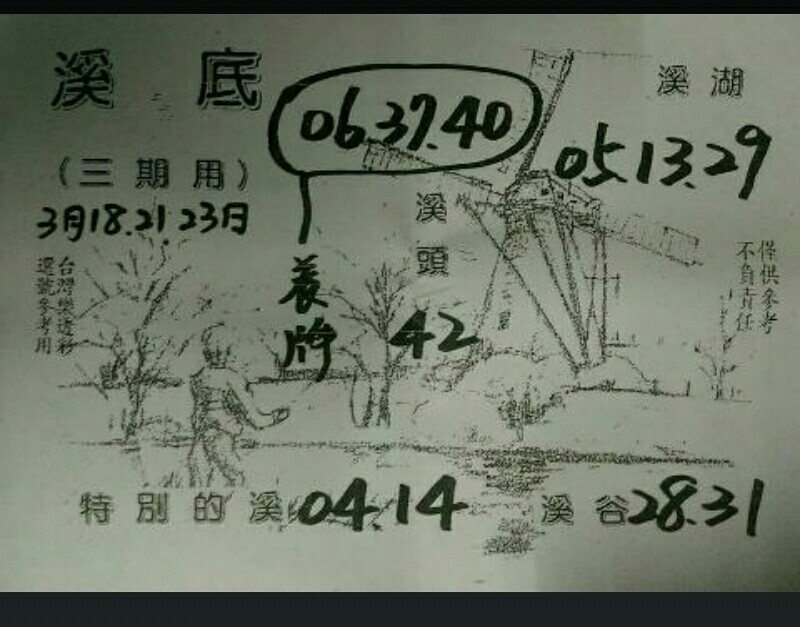 溪底
06.37.40
溪湖
05.13.29
(三期用)
3月18.21.23日
溪頭
42
養牌
台灣樂透彩
選號參考用
僅供參考
不負責任
特別的溪 04.14
溪谷 28.31